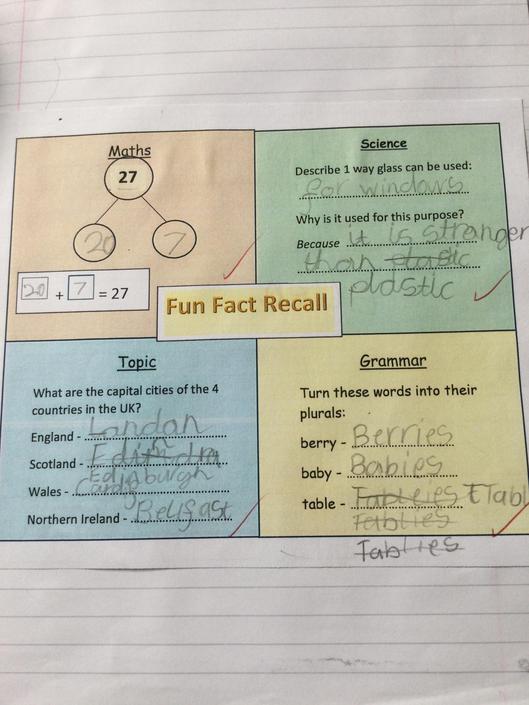 Maths
27
20 7
20 + 7 = 27
Science
Describe 1 way glass can be used:
for windows
Why is it used for this purpose?
Because it is stranger
than plastic
plastic
Fun Fact Recall
Topic
What are the capital cities of the 4
countries in the UK?
England - Landan
Scotland -
Edinburgh
Wales -
Northern Ireland - Belfast
Grammar
Turn these words into their
plurals:
berry - Berries
baby - Babies
table -
Tablies